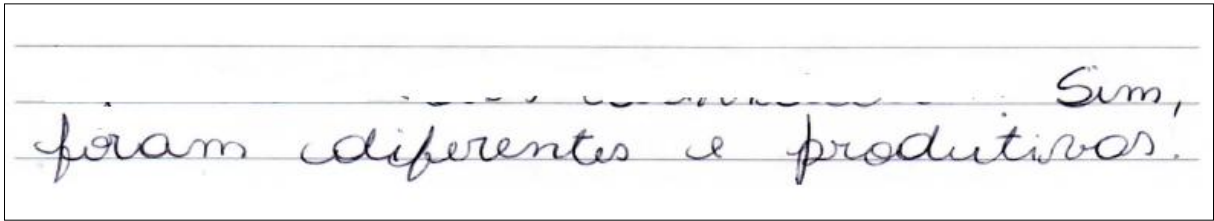 Sim,
foram diferentes e produtivas.